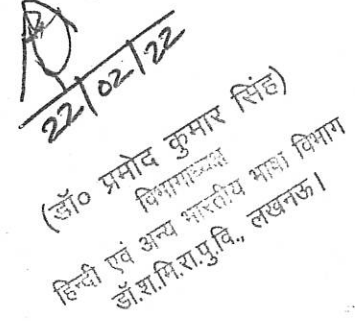 22/02/22
(डॉ० प्रमोद कुमार सिंह)
विभागाध्यक्ष
हिन्दी एवं अन्य भारतीय भाषा विभाग
डॉ.श.मि.रा.पु.वि., लखनऊ।